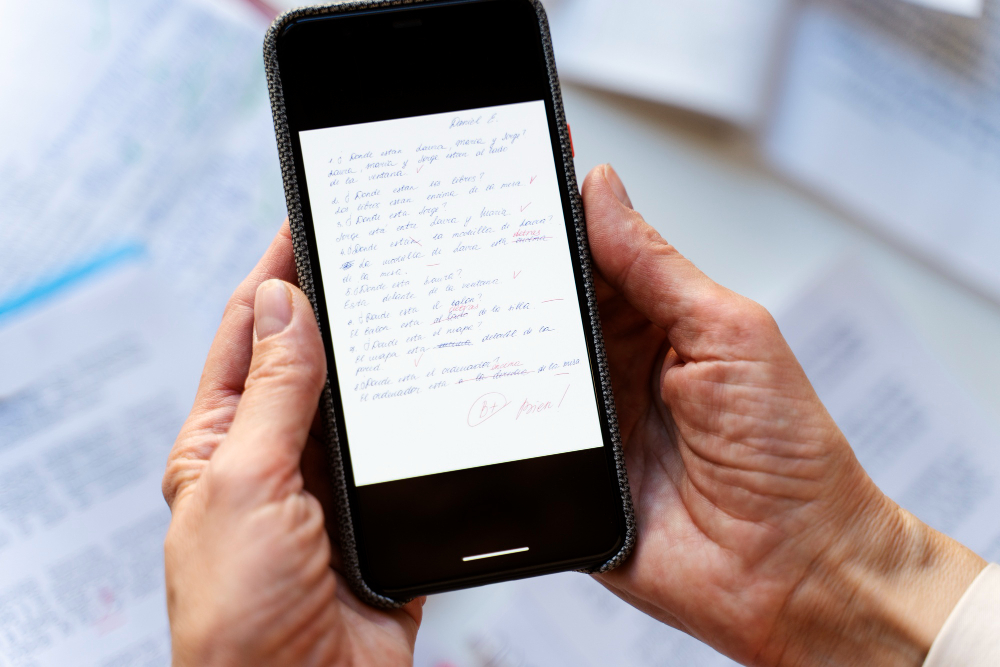 Daniel E.
1. ¿Donde estan Laura, Maria y Jorge?
Laura, Maria y Jorge estan al lado
de la ventana
2. ¿Donde estan los libros?
Los libros estan encima de la mesa
3. ¿Donde esta Jorge?
Jorge esta entre Laura y Maria
4. ¿Donde esta la mochilla de Laura?
detras
La mochilla de Laura esta
de la mesa.
5. ¿Donde esta
Esta delante de la ventana
6. ¿Donde esta el balon?
El balon esta al lado de la silla
7. ¿Donde esta el mapa?
El mapa esta detrás de la
pared
8. ¿Donde esta el ordenador?
El ordenador esta a la derecha de la mesa
B+ Bien!